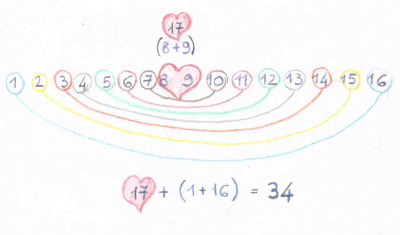 17
(8+9)
1 2 3 4 5 6 7 8 9 10 11 12 13 14 15 16
17 + (1+16) = 34